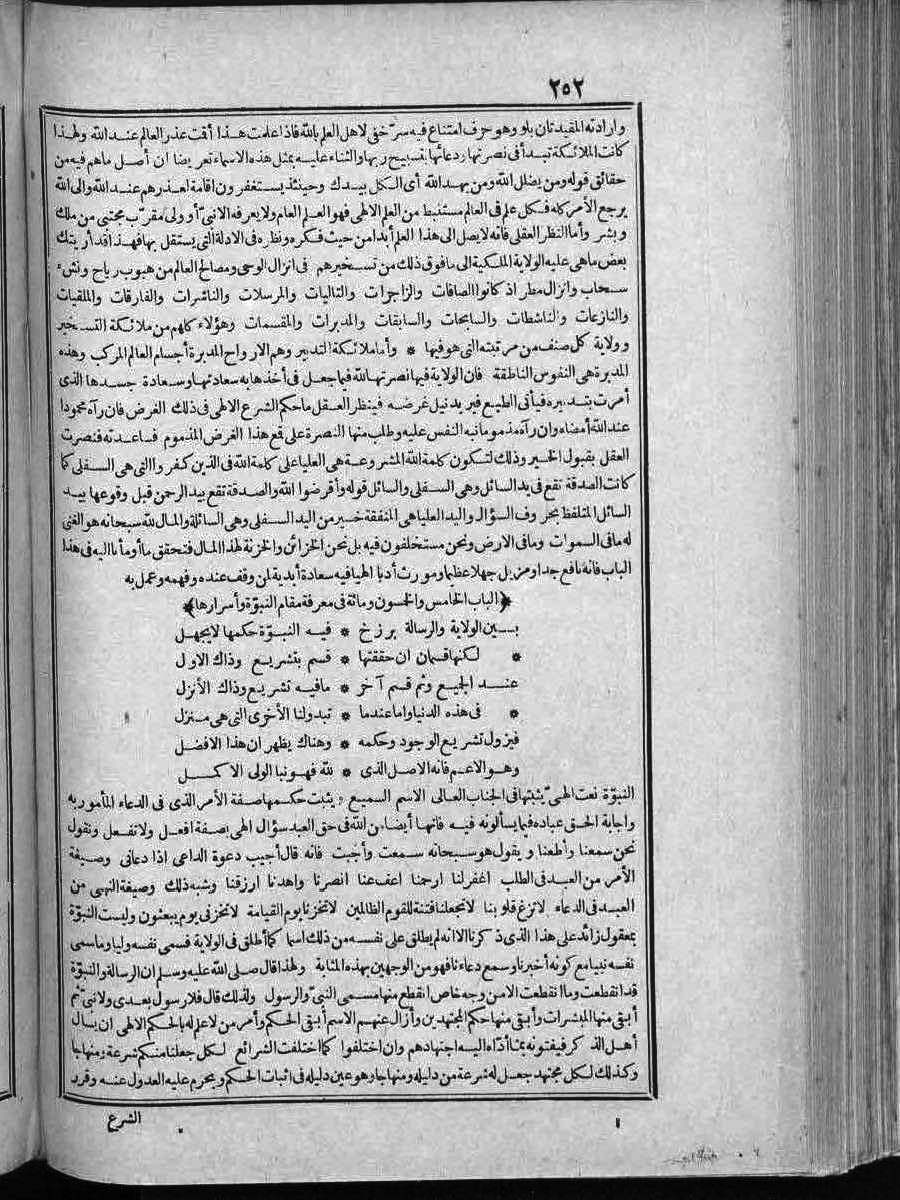 ٢٥٢
وارادته المقيدتان بلو وهو حرف امتناع فيه سرّ خفى لاهل العلم بالله فاذا علمت هذا أقت عذر العالم عند الله ولهذا
كانت الملائكة تبدأ فى نصرتها ودعائها بتسبيح ربها والثناء عليه بمثل هذه الاسماء تعريضا ان أصل ماهم فيه من
حقائق قوله ومن يضلل الله ومن يهد الله أى الكل بيدك وحينئذ يستغفرون اقامة لعذرهم عند الله والى الله
يرجع الأمر كله فكل علم فى العالم مستنبط من العلم الالهى فهو العلم العام ولا يعرفه الانبىّ أو ولى مقرّب مجتبى من ملك
وبشر وأما النظر العقلى فانه لا يصل الى هذا العلم أبدا من حيث فكره ونظره فى الادلة التى يستقل بها فهذا قد أريتك
بعض ماهى عليه الولاية الملكية الى مافوق ذلك من تسخيرهم فى انزال الوحى ومصالح العالم من هبوب رياح ونشء
سحاب وانزال مطر اذ كانوا الصافات والزاجرات والتاليات والمرسلات والناشرات والفارقات والملقيات
والنازعات والناشطات والسابحات والسابقات والمدبرات والمقسمات وهؤلاء كلهم من ملائكة التسخير
وولاية كل صنف من مرتبته التى هو فيها * وأما ملائكة التدبير وهم الارواح المدبرة أجسام العالم المركب وهذه
المدبرة هى النفوس الناطقة فان الولاية فيها نصرتها لله فيما جعل فى أخذها به سعادتها وسعادة جسدها الذى
أمرت بتدبيره فيأتى الطبع فيريد نيل غرضه فينظر العقل ما حكم الشرع الالهى فى ذلك الغرض فان رآه محمودا
عند الله أمضاه وان رآه مذموما نبه النفس عليه وطلب منها النصرة على قمع هذا الغرض المذموم فساعدته فنصرت
العقل بقبول الخير وذلك لتكون كلمة الله المشروعة هى العليا على كلمة الله فى الذين كفروا التى هى السفلى كما
كانت الصدقة تقع فى يد السائل وهى السفلى والسائل قوله وأقرضوا الله والصدقة تقع بيد الرحمن قبل وقوعها بيد
السائل المتلفظ بحروف السؤال واليد العليا هى المنفقة خير من اليد السفلى وهى السائلة والمال لله سبحانه هو الغنى
له مافى السموات ومافى الارض ونحن مستخلفون فيه بل نحن الخزائن والخزنة لهذا المال فتحقق ما أومأنا اليه فى هذا
الباب فانه نافع جدا ومزيل جهلا عظيما ومورث أدبا الهيا فيه سعادة أبدية لمن وقف عنده وفهمه وعمل به
﴿الباب الخامس والخمسون ومائة فى معرفة مقام النبوّة وأسرارها﴾
بــين الولاية والرسالة برزخ * فيه النبوّة حكمها لا يجهل
* لكنها قسمان ان حققتها * قسم بتشريع وذاك الاول
عند الجميع وثم قسم آخر * مافيه تشريع وذاك الأنزل
* فى هذه الدنيا واما عندما * تبدو لنا الأخرى التى هى منزل
فيزول تشريع الوجود وحكمه * وهناك يظهر ان هذا الافضل
وهو الاعم فانه الاصل الذى * لله فهو نبا الولى الاكمل
النبوّة نعت الهىّ يثبتها فى الجناب العالى الاسم السميع ويثبت حكمها صفة الأمر الذى فى الدعاء المأمور به
واجابة الحق عباده فيما يسألونه فيه فانها أيضا من الله فى حق العبد سؤال الهى بصفة افعل ولا تفعل ونقول
نحن سمعنا وأطعنا ويقول هو سبحانه سمعت وأجبت فانه قال أجيب دعوة الداعى اذا دعانى وصيغة
الأمر من العبد فى الطلب اغفر لنا ارحمنا اعف عنا انصرنا واهدنا ارزقنا وشبه ذلك وصيغة النهى من
العبد فى الدعاء لا تزغ قلوبنا لا تجعلنا فتنة للقوم الظالمين لا تخزنا يوم القيامة لا تخزنى يوم يبعثون وليست النبوّة
بمعقول زائد على هذا الذى ذكرنا الا انه لم يطلق على نفسه من ذلك اسما كما أطلق فى الولاية فسمى نفسه وليا وما سمى
نفسه نبيا مع كونه أخبرنا وسمع دعاءنا فهو من الوجهين بهذه المثابة ولهذا قال صلى الله عليه وسلم ان الرسالة والنبوّة
قد انقطعت وما انقطعت الا من وجه خاص انقطع منها مسمى النبىّ والرسول ولذلك قال فلا رسول بعدى ولا نبىّ ثم
أبقى منها المبشرات وأبقى منها حكم المجتهدين وأزال عنهم الاسم وأبقى الحكم وأمر من لا علم له بالحكم الالهى ان يسأل
أهل الذكر فيفتونه بما أدّاه اليه اجتهادهم وان اختلفوا كما اختلفت الشرائع لكل جعلنا منكم شرعة ومنهاجا
وكذلك لكل مجتهد جعل له شرعة من دليله ومنهاجا وهو عين دليله فى اثبات الحكم ويحرم عليه العدول عنه وقرر
الشرع